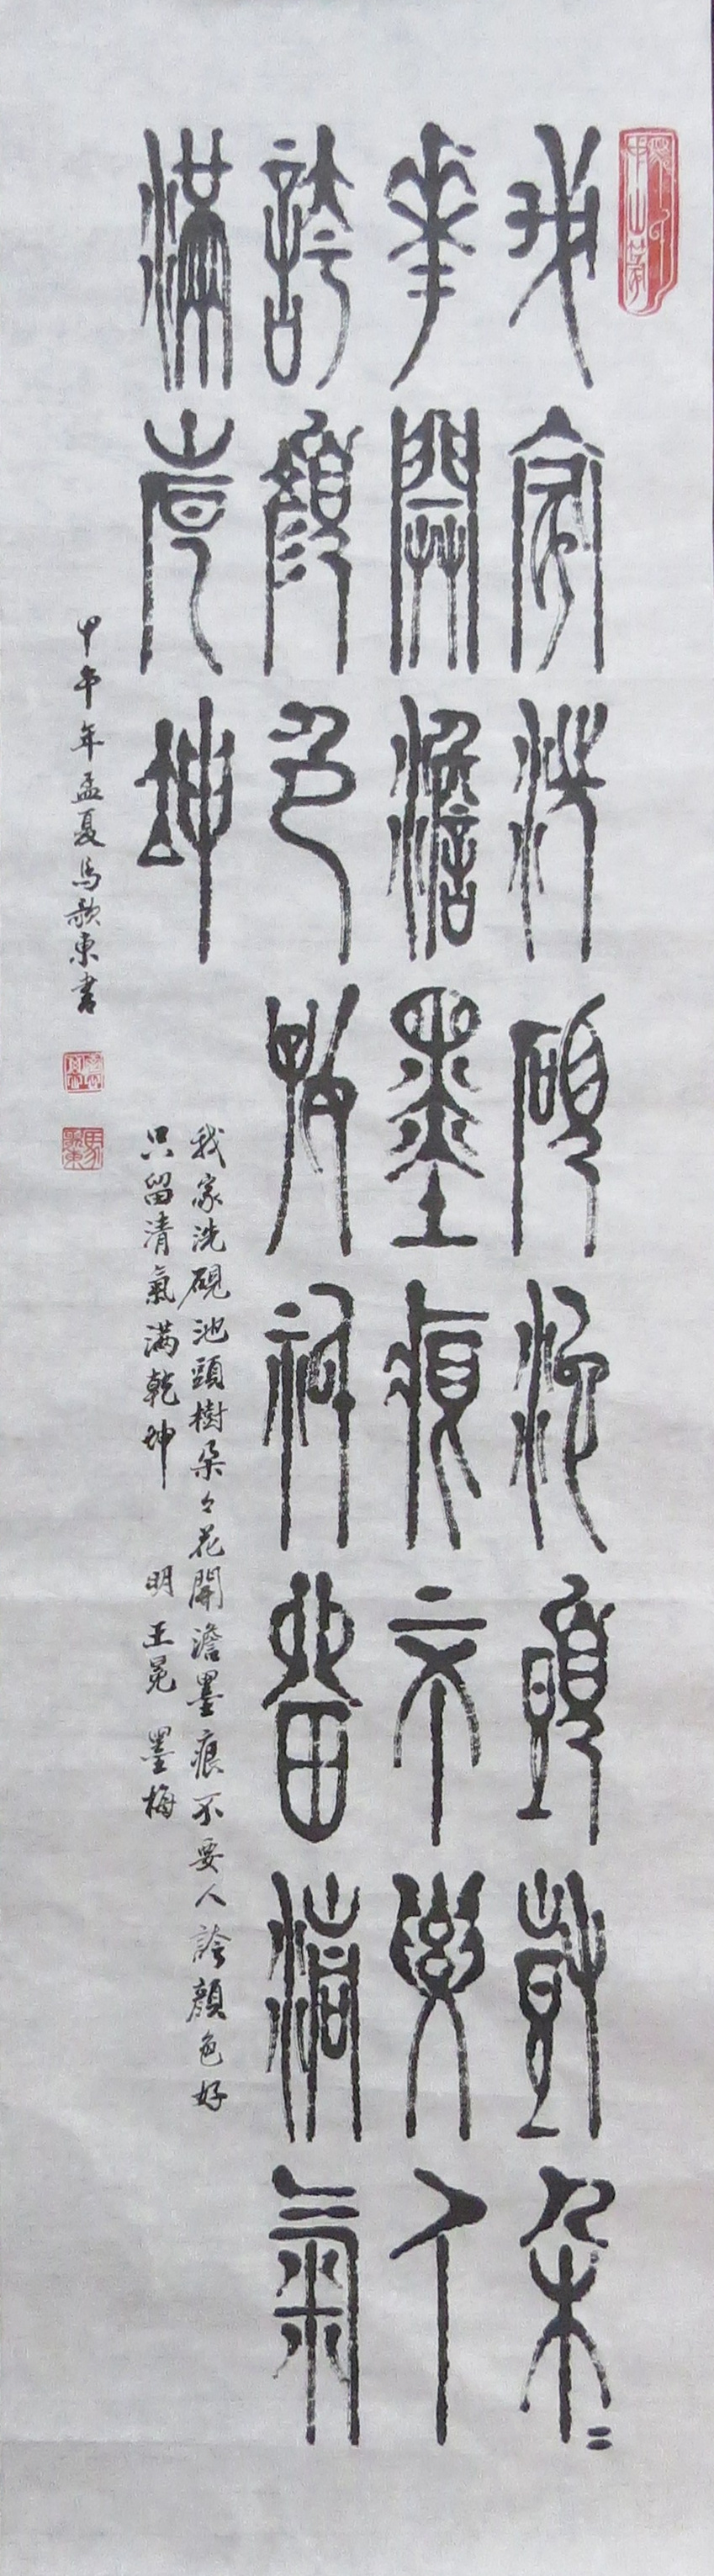 我家洗硯池頭樹朵々
華開澹墨痕不要人
誇顏色好祇留清氣
滿乾坤
我家洗硯池頭樹朵々花開澹墨痕不要人誇顏色好
只留清氣滿乾坤 明王冕 墨梅
甲午年孟夏馬歌東書
馬歌東